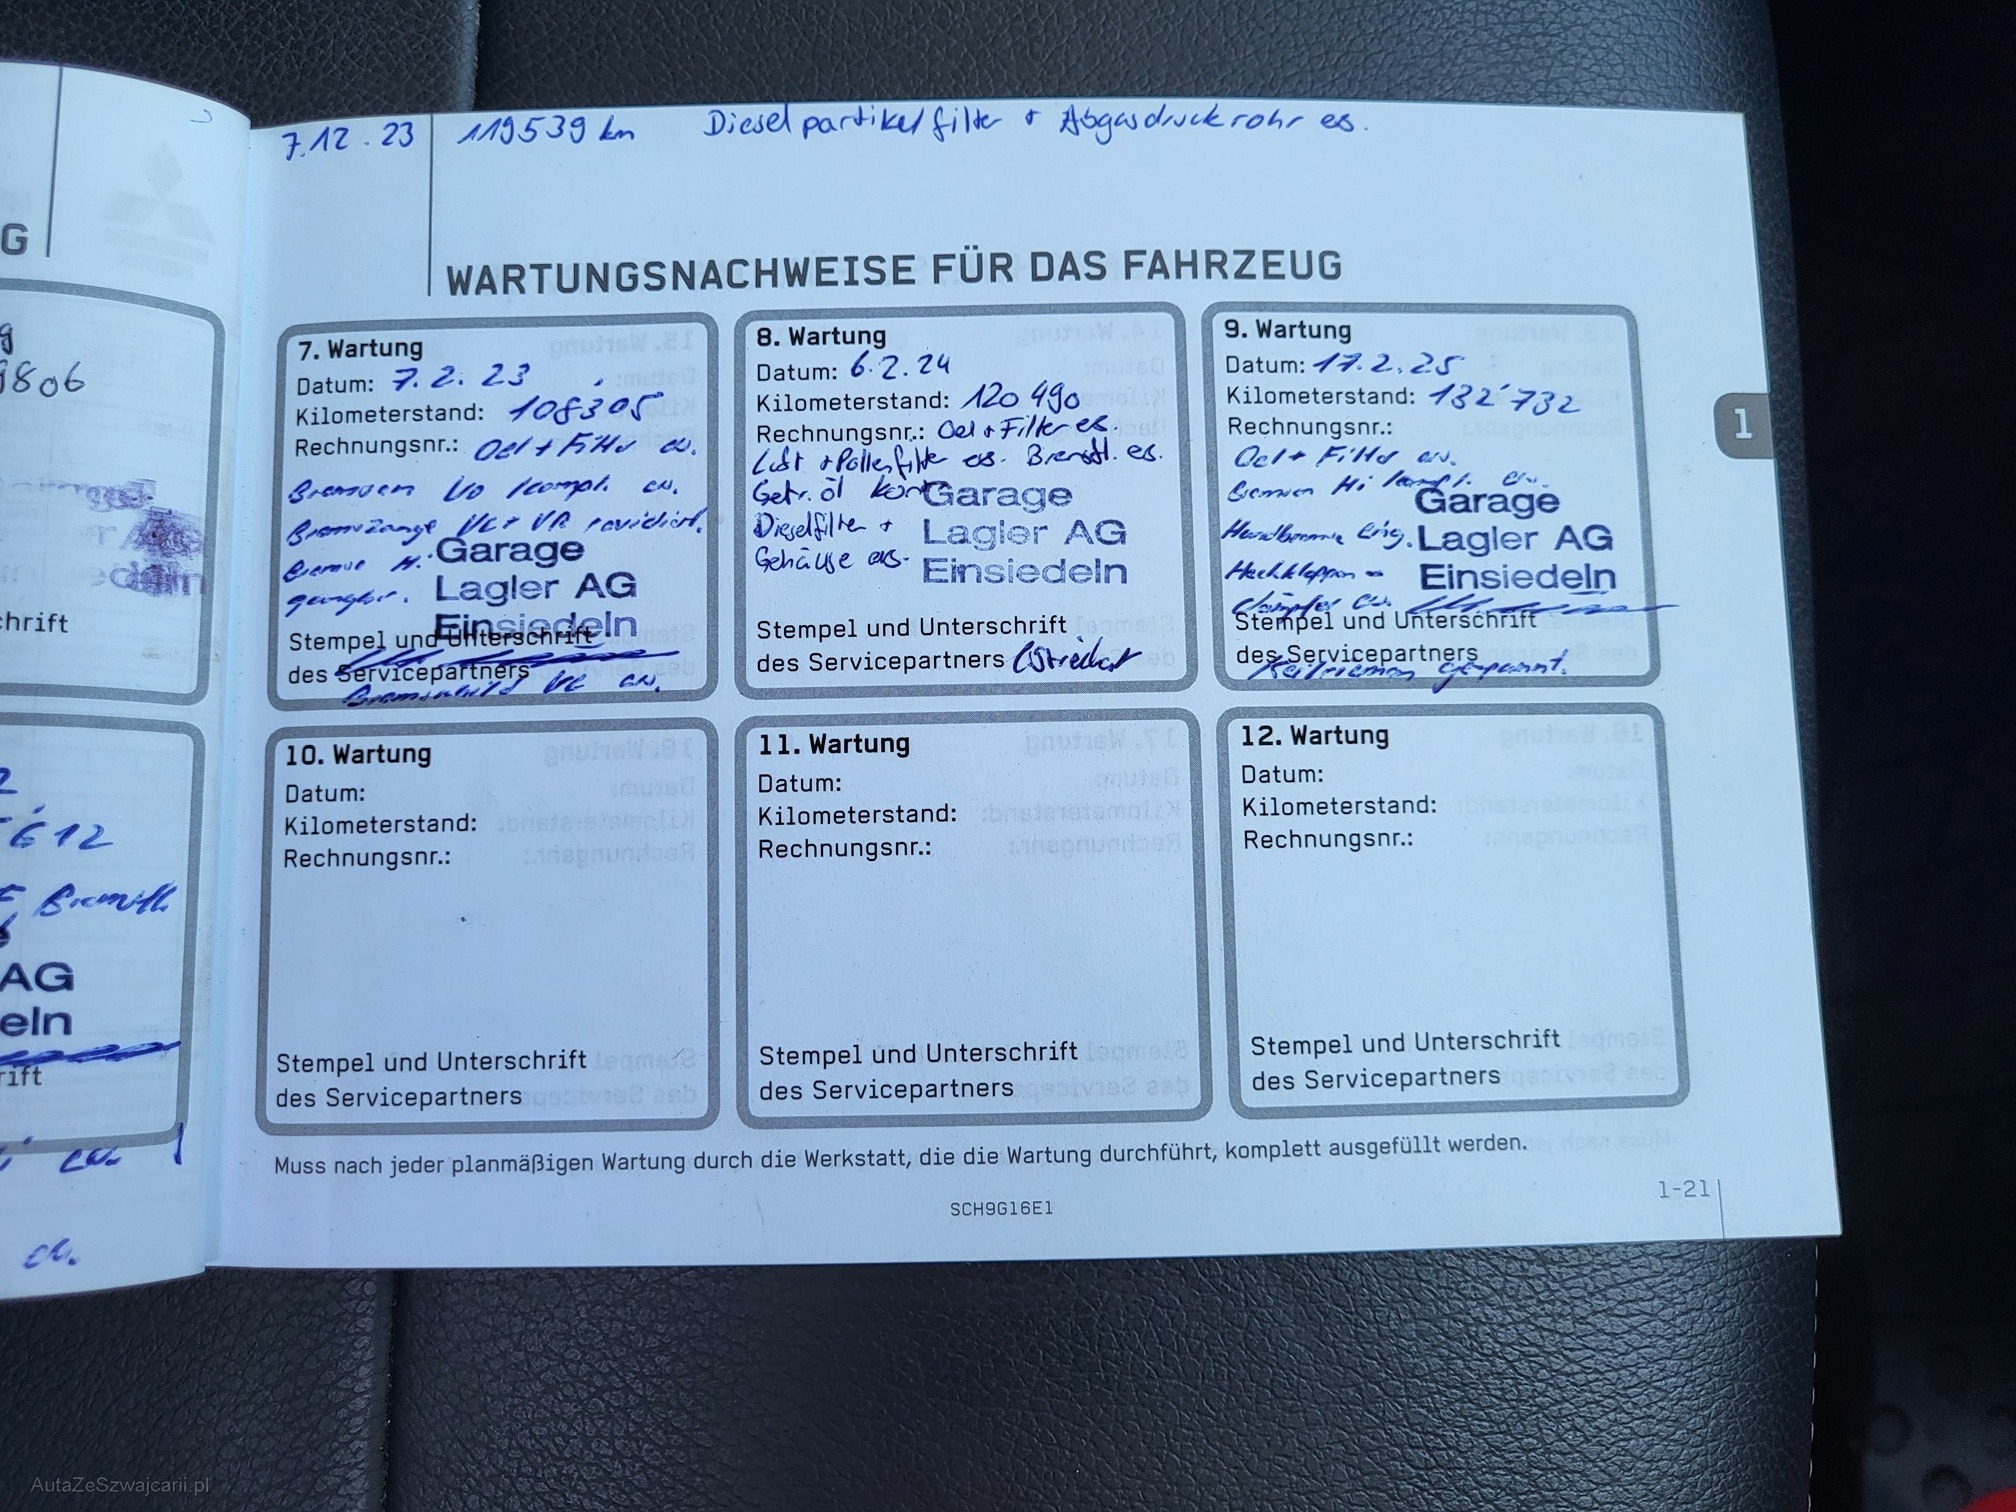 7.12.23 119539 km Dieselpartikelfilter + Abgasdruckrohr es.
WARTUNGSNACHWEISE FÜR DAS FAHRZEUG
7. Wartung
Datum: 7.2.23
Kilometerstand: 108305
Rechnungsnr.: Oel + Filter
Bremsen Vo kompl.
Bremszange VL + VR revidiert.
Bremse H.
Garage
Lagler AG
Einsiedeln
Stempel und Unterschrift
des Servicepartners
8. Wartung
Datum: 6.2.24
Kilometerstand: 120490
Rechnungsnr.: Oel + Filter es.
Luft + Pollenfilter es. Bremsfl. es.
Getr. öl
Dieselfilter +
Gehäuse es.
Garage
Lagler AG
Einsiedeln
Stempel und Unterschrift
des Servicepartners
9. Wartung
Datum: 17.2.25
Kilometerstand: 132'732
Rechnungsnr.:
Oel + Filter
Bremsen Hi kompl.
Handbremse
Heckklappen
dämpfer
Garage
Lagler AG
Einsiedeln
Stempel und Unterschrift
des Servicepartners
Keilriemen gespannt.
10. Wartung
Datum:
Kilometerstand:
Rechnungsnr.:
Stempel und Unterschrift
des Servicepartners
11. Wartung
Datum:
Kilometerstand:
Rechnungsnr.:
Stempel und Unterschrift
des Servicepartners
12. Wartung
Datum:
Kilometerstand:
Rechnungsnr.:
Stempel und Unterschrift
des Servicepartners
Muss nach jeder planmäßigen Wartung durch die Werkstatt, die die Wartung durchführt, komplett ausgefüllt werden.
SCH9G16E1
1-21
1
G
9806
hrift
612
AG
eln
rift
AutaZeSzwajcarii.pl